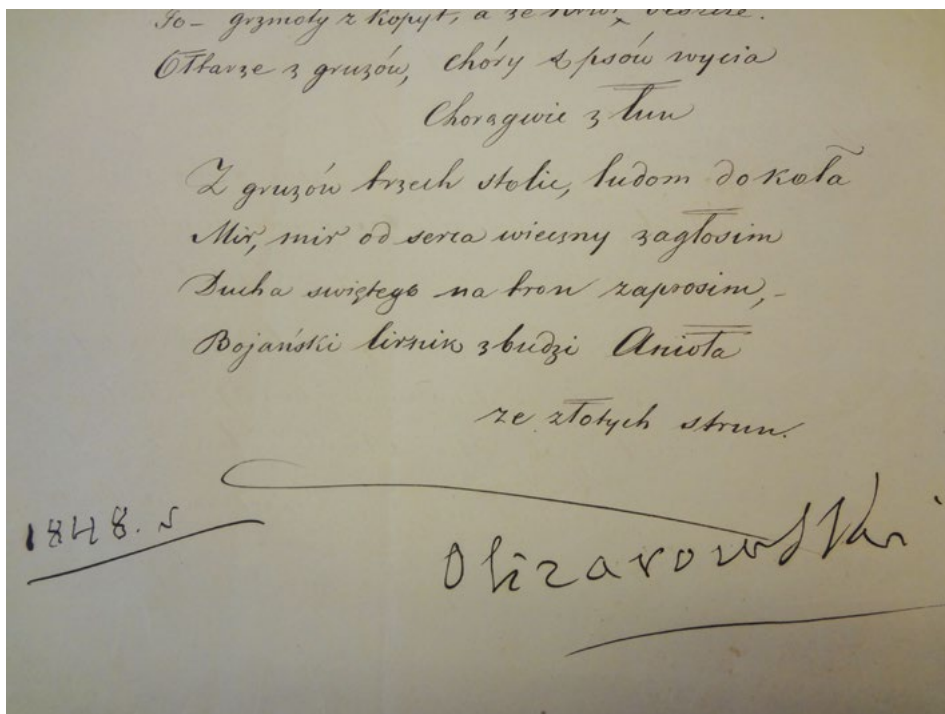 To – grzmoty z kopyt, a ze krwi,
Ołtarze z gruzów, chóry z psów wycia
Chorągwie z łun
Z gruzów trzech stolic, ludom do koła
Mir, mir od serca wieczny zagłosim
Ducha swiętego na tron zaprosim, –
Bojański lirnik zbudzi Anioła
ze złotych strun.
1848. r
Olizarowski